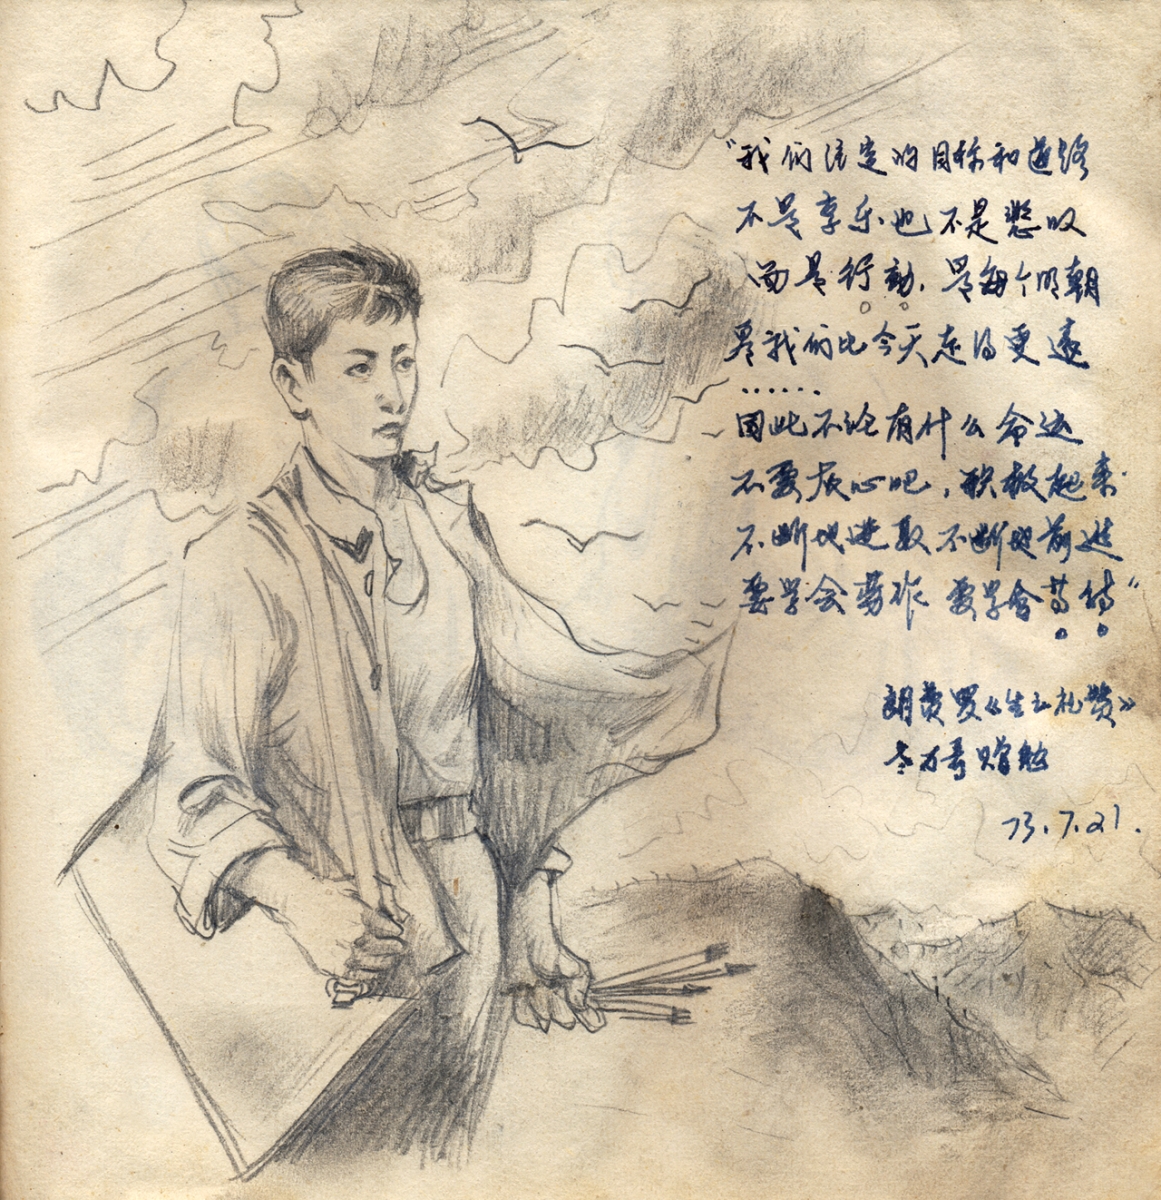 "我们注定的目标和道路
不是享乐也不是叹
而是行动，是每个明朝
我们比今天走得更远
······
因此不论有什么命运
不要灰心吧，积极起来
不断地进取 不断地前进
要学会劳作 要学会等待"
朗费罗《生之礼赞》
哥赠勉
73.7.21.